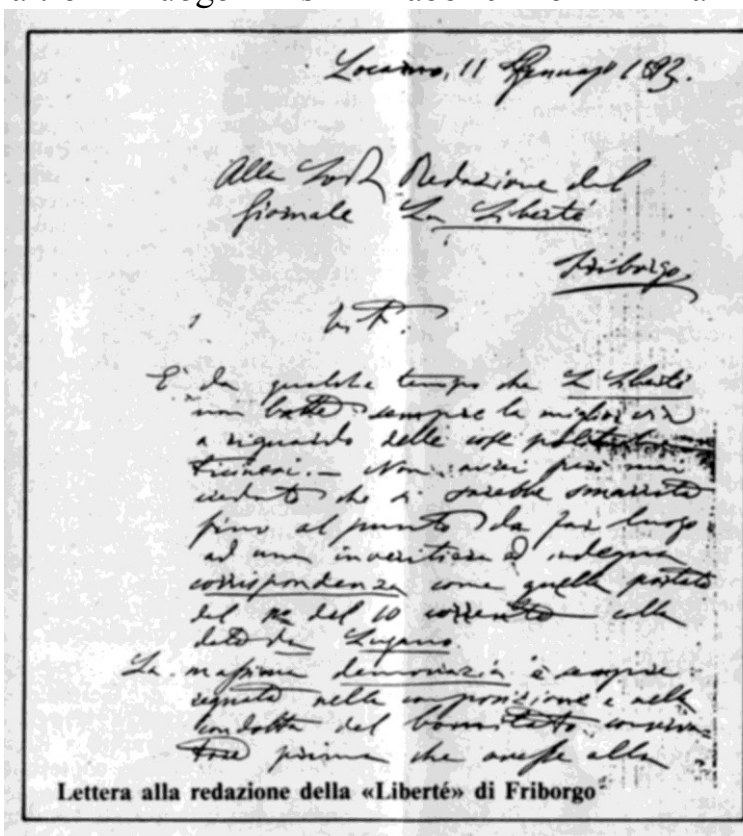 Locarno, 11 Gennajo 1893.
Alla Redazione del
Giornale La Liberté
Friborgo
È da qualche tempo che La Liberté
non batte sempre la miglior via
a riguardo delle cose
ticinesi. — Non avrei però mai
creduto che si sarebbe smarrita
fino al punto da far luogo
ad una inveritiera ed indegna
corrispondenza come quella portata
dal No del 10 corrente colla
data da Lugano
La massima democrazia è sempre
regnata nella composizione e nella
condotta del Comitato conserva-
tore prima che avesse alla
Lettera alla redazione della «Liberté» di Friborgo